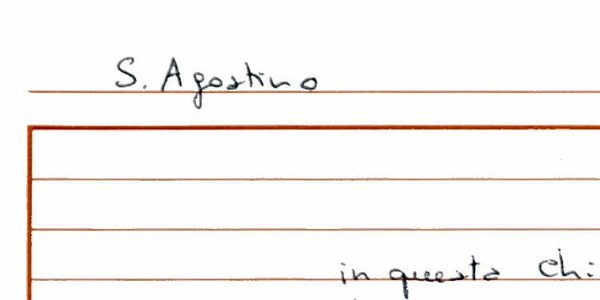 S. Agostino
in questa chi